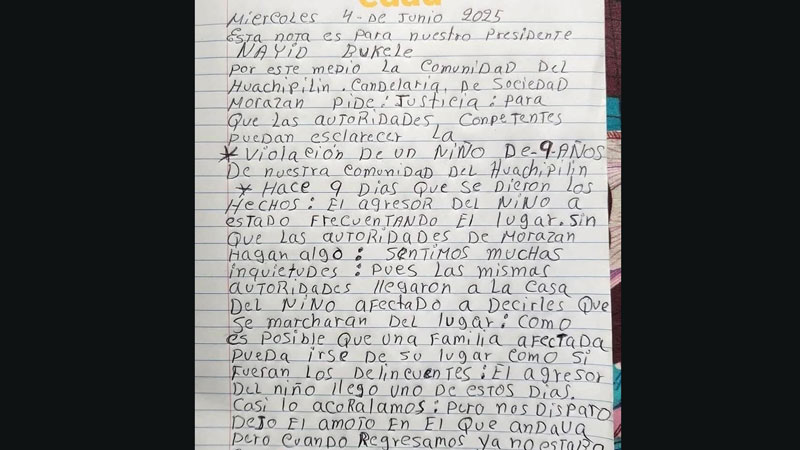 Miercoles 4-De Junio 2025
Esta nota es para nuestro Presidente
NAYID BUKELE
por este medio la comunidad del
Huachipilin. Candelaria, De Sociedad
Morazan pide: Justicia: para
Que las autoridades, conpetentes
puedan esclarecer la
* Violación De un niño De-9-Años
De nuestra comunidad Del Huachipilin
* Hace 9 Dias que se dieron los
Hechos: El agresor Del niño a
estado frecuentando el lugar. sin
Que las autoridades de Morazan
Hagan algo: Sentimos muchas
inquietudes: pues las mismas
autoridades llegaron a la casa
Del niño afectado a Decirles que
se marcharan Del lugar: como
es posible que una familia afectada
pueda irse de su lugar como si
fueran los delincuentes: El agresor
Del niño llego uno de estos dias.
Casi lo acoralamos: pero nos disparo
Dejo el amoto en el que andaua
pero cuando Regresamos ya no estaba